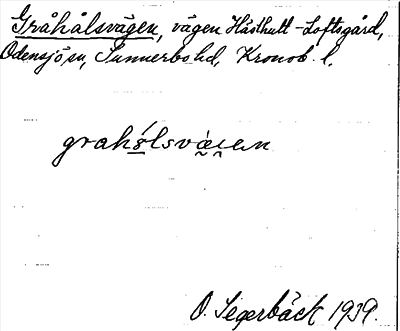 Gråhålsvägen, vägen Hästhult - Loftsgård,
Odensjö sn, Sunnerbo hd, Kronob. l.
grahólsvä̀ɩen
O. Segerbäck 1939.